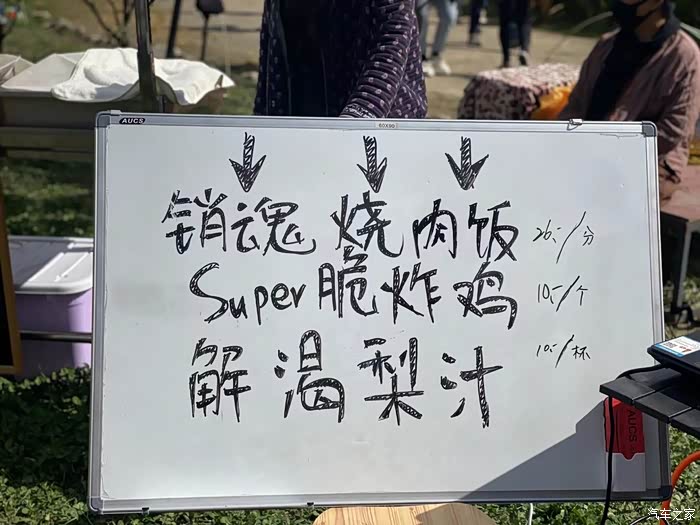 AUCS
60X90
销魂 烧肉饭 26.-/分
Super脆炸鸡 10.-/个
解渴梨汁 10.-/杯
AUCS
汽车之家